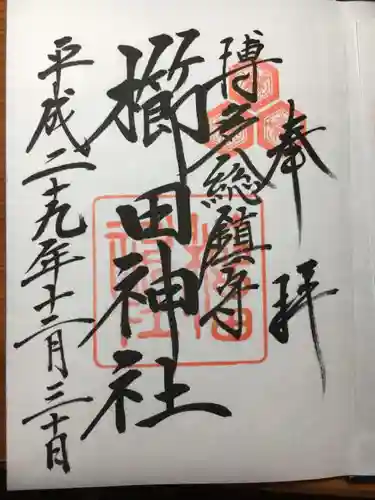 奉拝
博多総鎮守
櫛田神社
平成二十九年十二月三十日